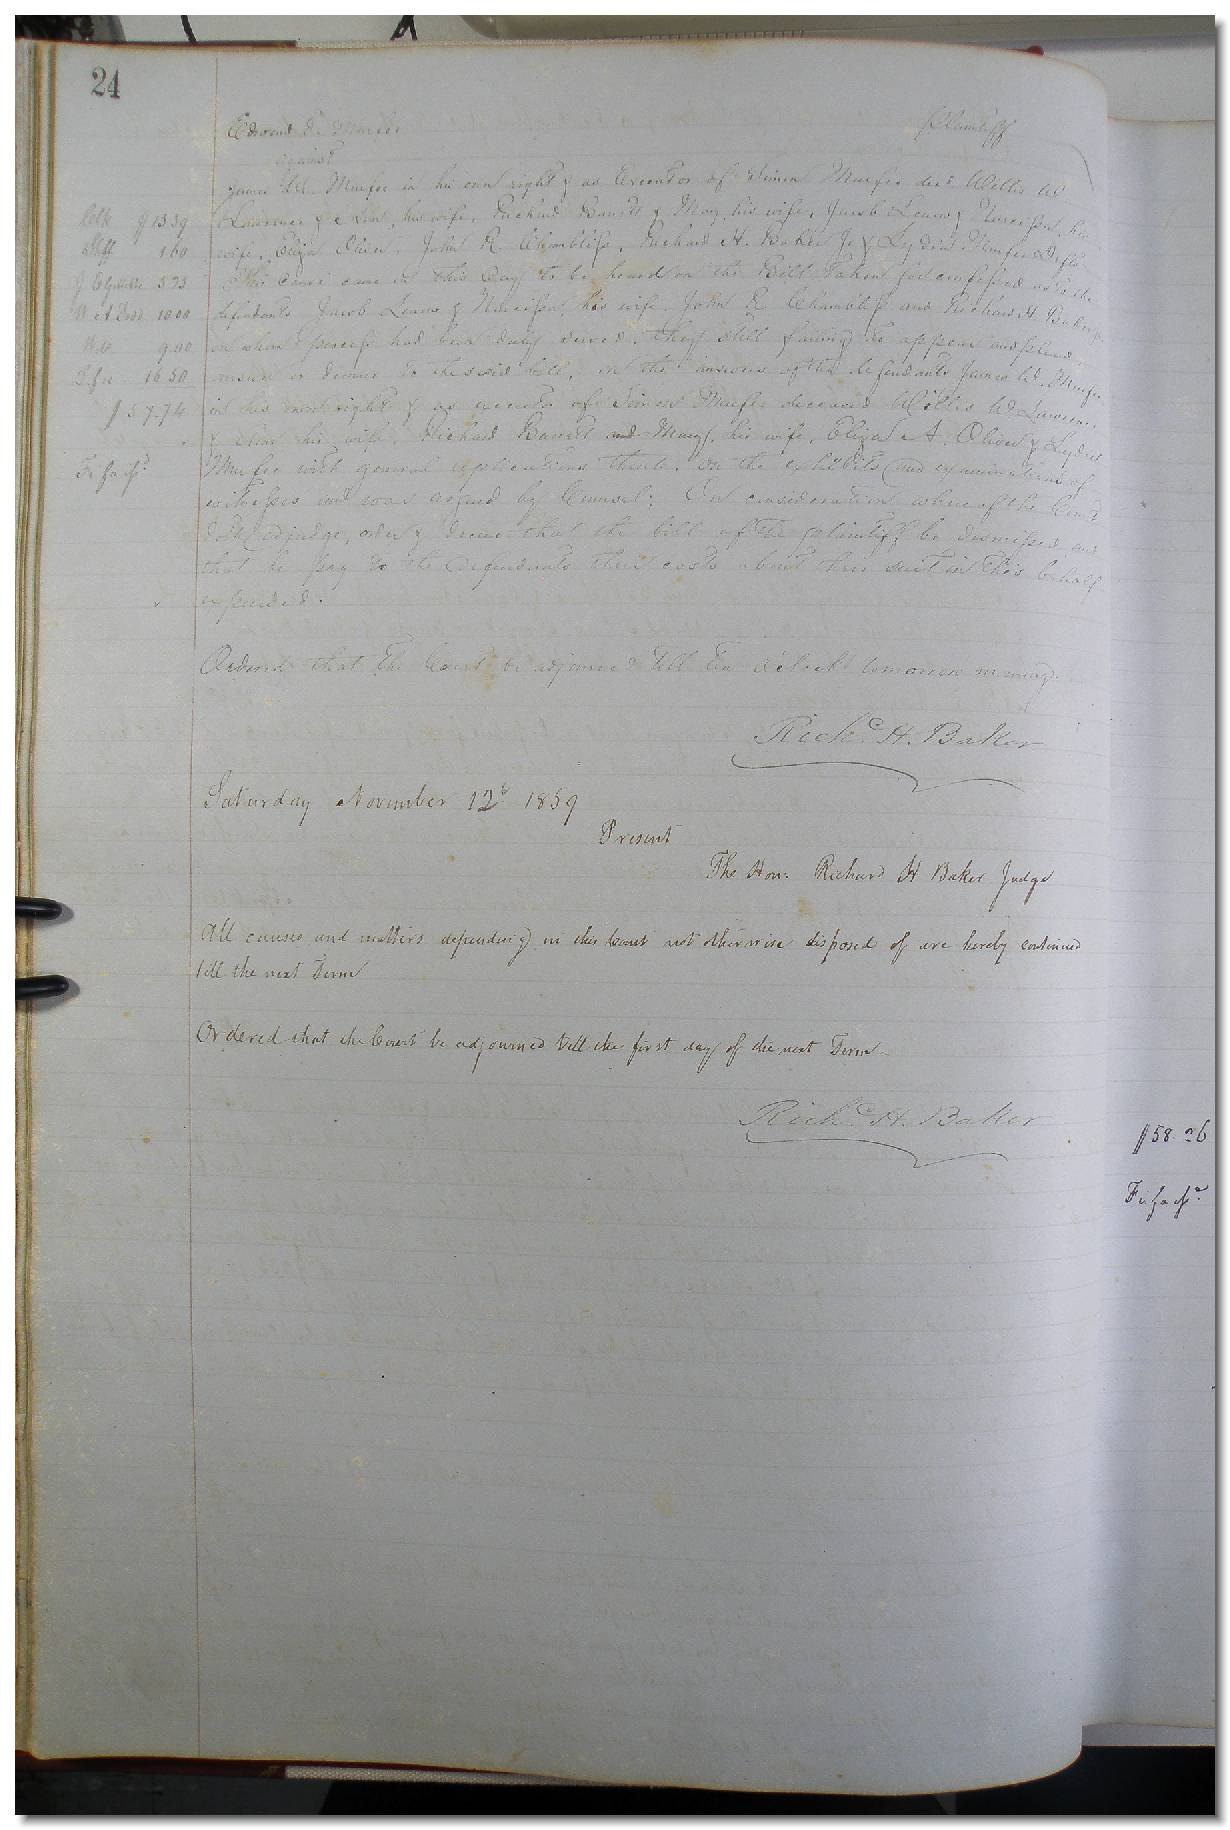 24
Edward D. Murfee Plaintiff
against
James W. Murfee in his own right & as Executor of Simon Murfee decd Willis W
Clk $ 13.39 Lawrence & his wife, Richard Barrett & Mary, his wife, Jacob & Narcissa, his
Shff 1.60 wife, Eliza Oliver, John R. Chambliss, Richard H. Baker Jr & Lydia Murfee Defts
5.75 This cause came on this day to be heard on the Bill taken for confessed as to the
10.00 defendants Jacob & Narcissa, his wife, John R Chambliss and Richard H. Baker jr
9.00 on whom process had been duly served, they still failing to appear and plead
16.50 answer or demur to the said bill, on the answers of the defendants James W. Murfee
$57.74 in his own right & as executor of Simon Murfee deceased Willis W Lawrence
& his wife Richard Barrett and Mary, his wife, Eliza A. Oliver & Lydia
Fi fa Murfee with general replications thereto, on the exhibits and examinations of
witnesses and was argued by Counsel: On consideration whereof the Court
doth adjudge, order & decree that the bill of the plaintiff be dismissed, and
that he pay to the defendants their costs about their suit in this behalf
expended.
Ordered that the Court be adjourned till Ten o'clock tomorrow morning.
Richd H. Baker
Saturday November 12th 1859
Present
The Hon: Richard H Baker Judge
All causes and matters depending in this Court not otherwise disposed of are hereby continued
till the next Term
Ordered that the Court be adjourned till the first day of the next Term.
Richd H. Baker
$58.26
Fi fa